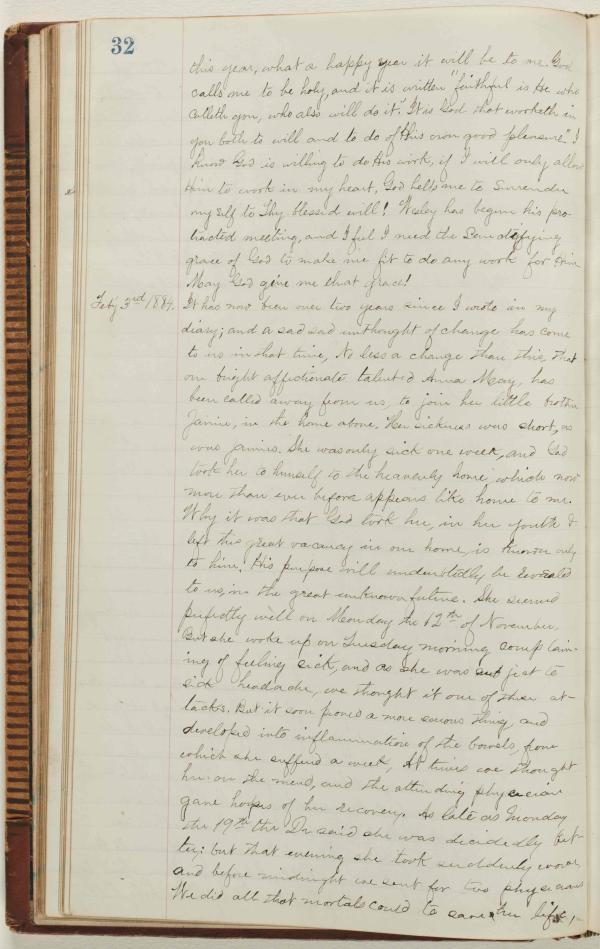 32
this year, what a happy year it will be to me. God
calls me to be holy, and it is written "faithful is He who
calleth you, who also will do it". "It is God that worketh in
you both to will and to do of His own good pleasure." I
know God is willing to do His work, if I will only allow
Him to work in my heart, God help me to surrender
myself to Thy blessed will! Wesley has begun his pro-
tracted meeting, and I feel I need the Sanctifying
grace of God to make me fit to do any work for Him
May God give me that grace!
Feb'y 3rd 1884. It has now been over two years since I wrote in my
diary; and a sad sad unthought of change has come
to us in that time, No less a change than this, that
our bright affectionate talented Anna May, has
been called away from us, to join her little brother
Jamie, in the home above. Her sickness was short, as
was Jamies. She was only sick one week, and God
took her to himself to the heavenly home, which now
more than ever before appears like home to me.
Why it was that God took her, in her youth &
left this great vacancy in our home, is known only
to him. His purpose will undoubtedly be revealed
to us, in the great unknown future. She seemed
perfectly well on Monday the 12th of November.
But she woke up on Tuesday morning complain-
ing of feeling sick, and as she was subject to
sick headache, we thought it one of these at-
tacks. But it soon proved a more serious thing, and
developed into inflammation of the bowels, from
which she suffered a week, At times we thought
her on the mend, and the attending physician
gave hopes of her recovery. As late as Monday
the 19th the Dr said she was decidedly bet-
ter; but that evening she took suddenly worse
and before midnight we sent for two physicians
We did all that mortals could to save her life,